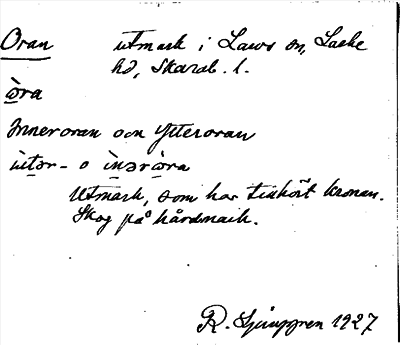 Oran utmark i Laws sn, Laske
hd, Skarab. l.
òra
Inneroran och Ytteroran
ùtər- o ìnəròra
Utmark, som har tillhört kronan.
Skog på hårdmark.
R. Ljunggren 1927